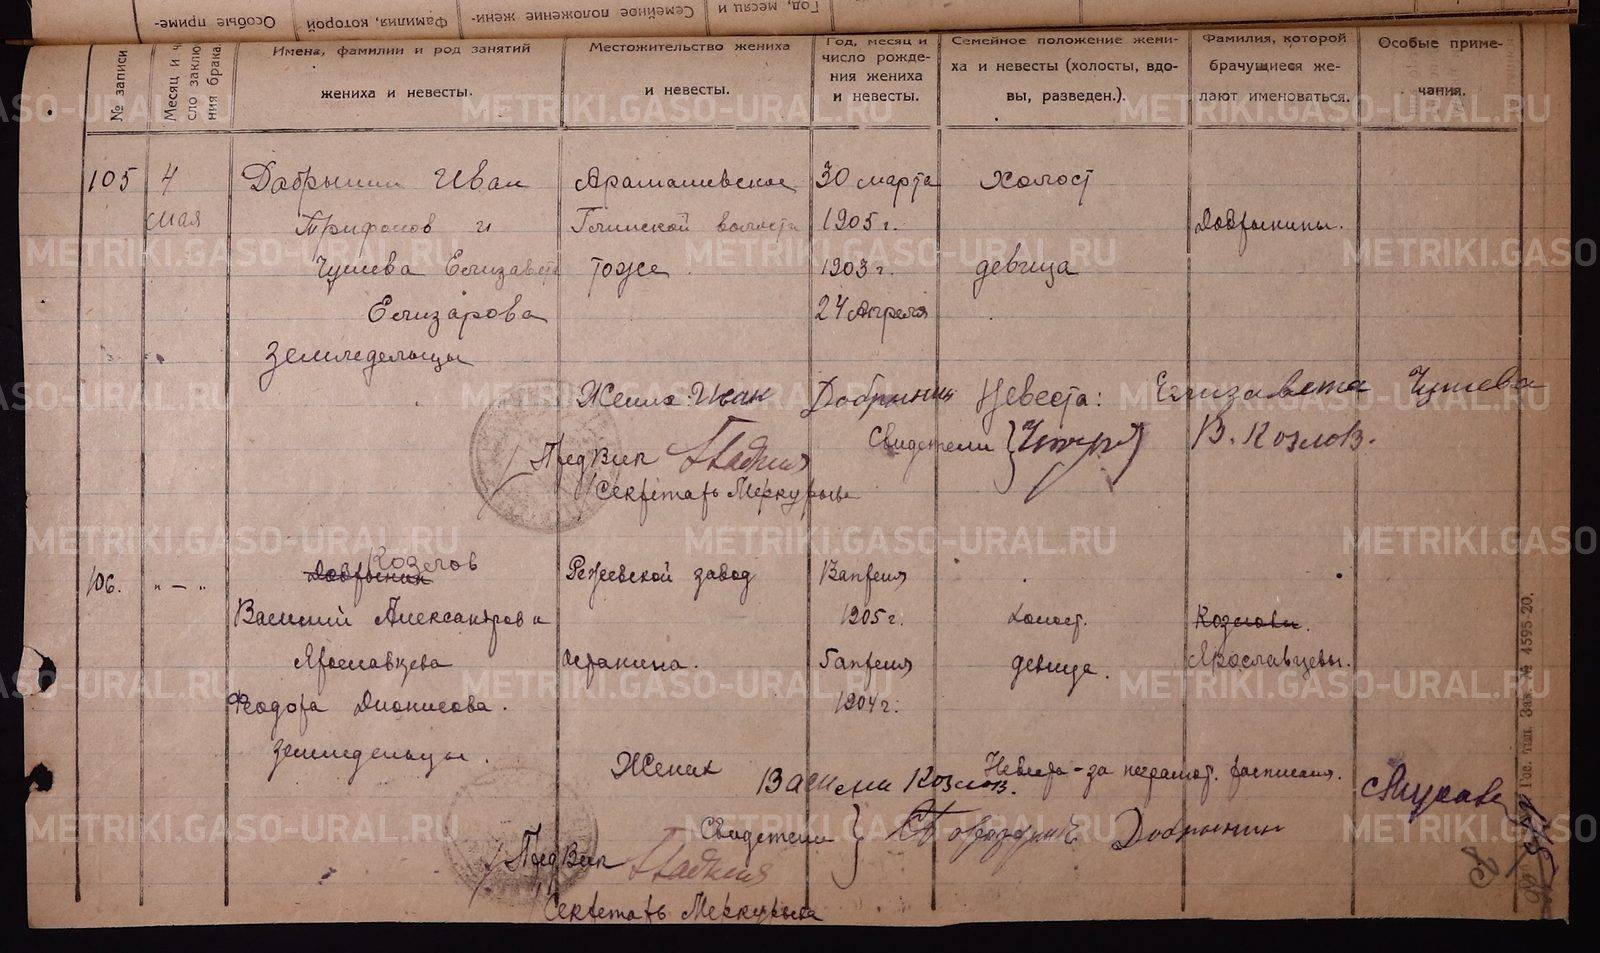 Особые приме- Фамилия, которой Семейное положение жени- Год, месяц и
№ записи
Месяц и ч
сло заклю
ния брака.
Имена, фамилии и род занятий
жениха и невесты.
Местожительство жениха
и невесты.
Год, месяц и
число рожде-
ния жениха
и невесты.
Семейное положение жени-
ха и невесты (холосты, вдо-
вы, разведен.).
Фамилия, которой
брачущиеся же-
лают именоваться.
Особые приме-
чания.
105 4 Добрынин Иван Арамашевское 30 марта холост
мая Трифонов и Глинской волости 1905 г. Добрынины.
Чушева Елизавета тоже 1903 г. девица
Елизарова 24 Апреля
земледельцы
Жених: Иван Добрынин Невеста: Елизавета Чушева
Свидетели В. Козлов.
ПредВик
Секретарь Меркурьев
106. " — " Добрынин Козлов Режевской завод 8 апреля
Василий Александров и 1905 г. холост. Козловы.
Ярославцева 5 апреля девица. Ярославцевы.
Феодора Дионисова. 1904 г.
земледельцы.
Жених Василий Козлов. Невеста - за неграмот. расписался.
Свидетели Добрынин
ПредВик
Секретарь Меркурьев
Гос. тип. Зак. № 4595-20.
METRIKI.GASO-URAL.RU